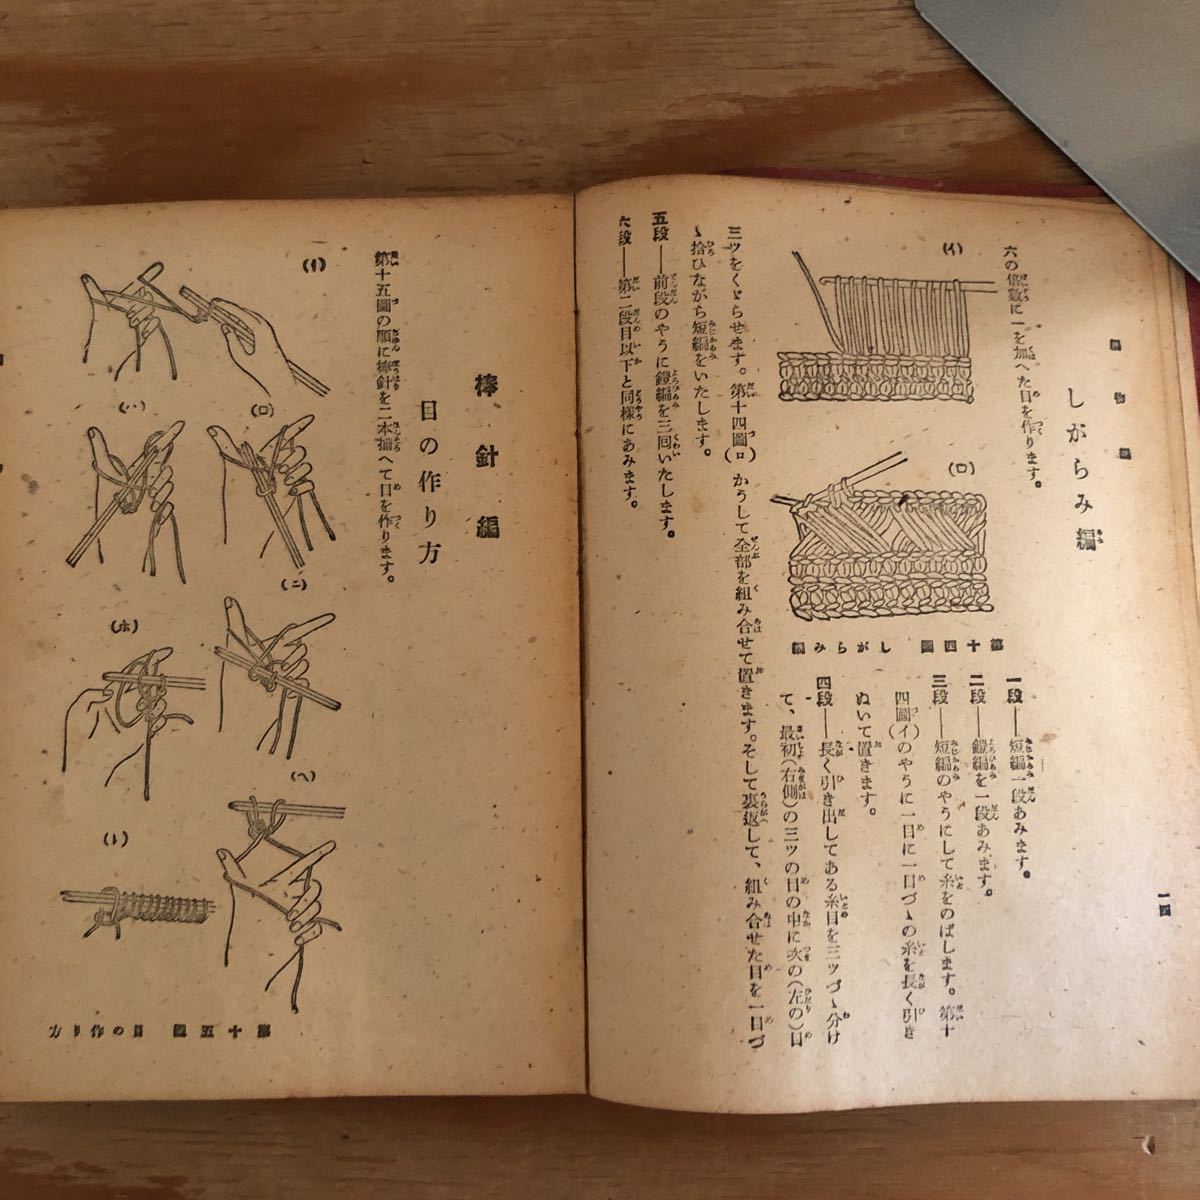 編物編
一四
しがらみ編
六の倍數に一を加へた目を作ります。
(イ)
(ロ)
第十四圖 しがらみ編
一段――短編一段あみます。
二段――鎧編を一段あみます。
三段――短編のやうにして糸をのばします。第十
四圖(イ)のやうに一目に一目づゝの糸を長く引き
ぬいて置きます。
四段――長く引き出してある糸目を三ツづゝ分け
て、最初(右側)の三ツの目の中に次の(左の)目
三ツをくゞらせます。第十四圖(ロ)かうして全部を組み合せて置きます。そして裏返して、組み合せた目を一目づ
ゝ拾ひながら短編をいたします。
五段――前段のやうに鎧編を三回いたします。
六段――第二段目以下と同樣にあみます。
棒針編
目の作り方
第十五圖の順に棒針を二本揃へて目を作ります。
(イ)
(ロ)
(ハ)
(ニ)
(ホ)
(ヘ)
(ト)
第十五圖 目の作り方